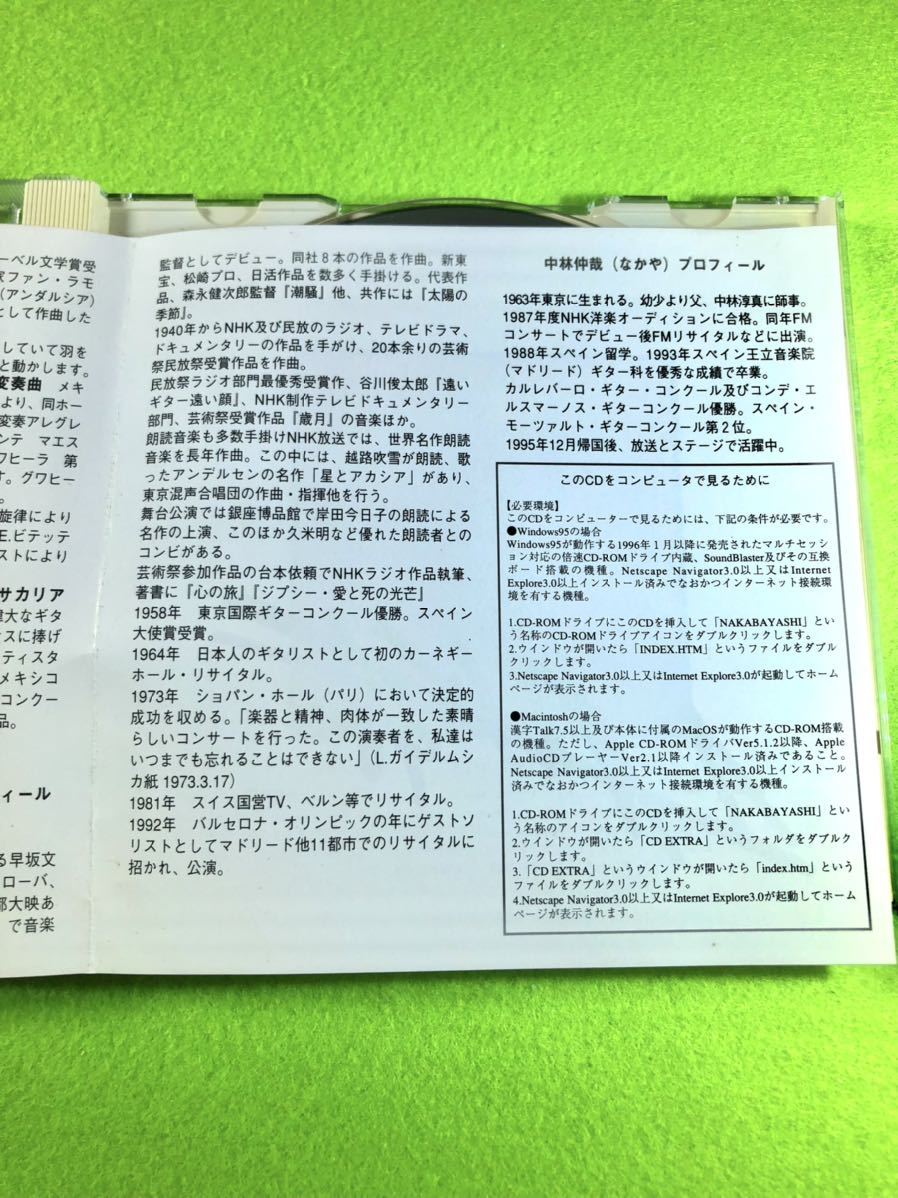 ーベル文学賞受
家ファン・ラモ
(アンダルシア)
として作曲した
していて羽を
と動かします。
変奏曲 メキ
より、同ホー
変奏アレグレ
ンテ マエス
ワヒーラ 第
す。グワヒー
。
旋律により
E.ビテッテ
ストにより
サカリア
偉大なギタ
オスに捧げ
ティスタ
メキシコ
コンクー
品。
ィール
る早坂文
ローバ、
都大映あ
で音楽
監督としてデビュー。同社8本の作品を作曲。新東
宝、松崎プロ、日活作品を数多く手掛ける。代表作
品、森永健次郎監督『潮騒』他、共作には『太陽の
季節』。
1940年からNHK及び民放のラジオ、テレビドラマ、
ドキュメンタリーの作品を手がけ、20本余りの芸術
祭民放祭受賞作品を作曲。
民放祭ラジオ部門最優秀受賞作、谷川俊太郎『遠い
ギター遠い顔』、NHK制作テレビドキュメンタリー
部門、芸術祭受賞作品『歳月』の音楽ほか。
朗読音楽も多数手掛けNHK放送では、世界名作朗読
音楽を長年作曲。この中には、越路吹雪が朗読、歌
ったアンデルセンの名作「星とアカシア」があり、
東京混声合唱団の作曲・指揮他を行う。
舞台公演では銀座博品館で岸田今日子の朗読による
名作の上演、このほか久米明など優れた朗読者との
コンビがある。
芸術祭参加作品の台本依頼でNHKラジオ作品執筆、
著書に『心の旅』『ジプシー・愛と死の光芒』
1958年 東京国際ギターコンクール優勝。スペイン
大使賞受賞。
1964年 日本人のギタリストとして初のカーネギー
ホール・リサイタル。
1973年 ショパン・ホール(パリ)において決定的
成功を収める。「楽器と精神、肉体が一致した素晴
らしいコンサートを行った。この演奏者を、私達は
いつまでも忘れることはできない」(L.ガイデルムシ
カ紙 1973.3.17)
1981年 スイス国営TV、ベルン等でリサイタル。
1992年 バルセロナ・オリンピックの年にゲストソ
リストとしてマドリード他11都市でのリサイタルに
招かれ、公演。
中林仲哉(なかや)プロフィール
1963年東京に生まれる。幼少より父、中林淳真に師事。
1987年度NHK洋楽オーディションに合格。同年FM
コンサートでデビュー後FMリサイタルなどに出演。
1988年スペイン留学。1993年スペイン王立音楽院
(マドリード)ギター科を優秀な成績で卒業。
カルレバーロ・ギター・コンクール及びコンデ・エ
ルスマーノス・ギターコンクール優勝。スペイン・
モーツァルト・ギターコンクール第2位。
1995年12月帰国後、放送とステージで活躍中。
このCDをコンピュータで見るために
【必要環境】
このCDをコンピューターで見るためには、下記の条件が必要です。
●Windows95の場合
Windows95が動作する1996年1月以降に発売されたマルチセッシ
ョン対応の倍速CD-ROMドライブ内蔵、SoundBlaster及びその互換
ボード搭載の機種。Netscape Navigator3.0以上又はInternet
Explore3.0以上インストール済みでなおかつインターネット接続環
境を有する機種。
1.CD-ROMドライブにこのCDを挿入して「NAKABAYASHI」とい
う名称のCD-ROMドライブアイコンをダブルクリックします。
2.ウインドウが開いたら「INDEX.HTM」というファイルをダブル
クリックします。
3.Netscape Navigator3.0以上又はInternet Explore3.0が起動してホーム
ページが表示されます。
●Macintoshの場合
漢字Talk7.5以上及び本体に付属のMacOSが動作するCD-ROM搭載
の機種。ただし、Apple CD-ROMドライバVer5.1.2以降、Apple
AudioCDプレーヤーVer2.1以降インストール済みであること。
Netscape Navigator3.0以上又はInternet Explore3.0以上インストール
済みでなおかつインターネット接続環境を有する機種。
1.CD-ROMドライブにこのCDを挿入して「NAKABAYASHI」とい
う名称のアイコンをダブルクリックします。
2.ウインドウが開いたら「CD EXTRA」というフォルダをダブルク
リックします。
3.「CD EXTRA」というウインドウが開いたら「index.htm」という
ファイルをダブルクリックします。
4.Netscape Navigator3.0以上又はInternet Explore3.0が起動してホーム
ページが表示されます。